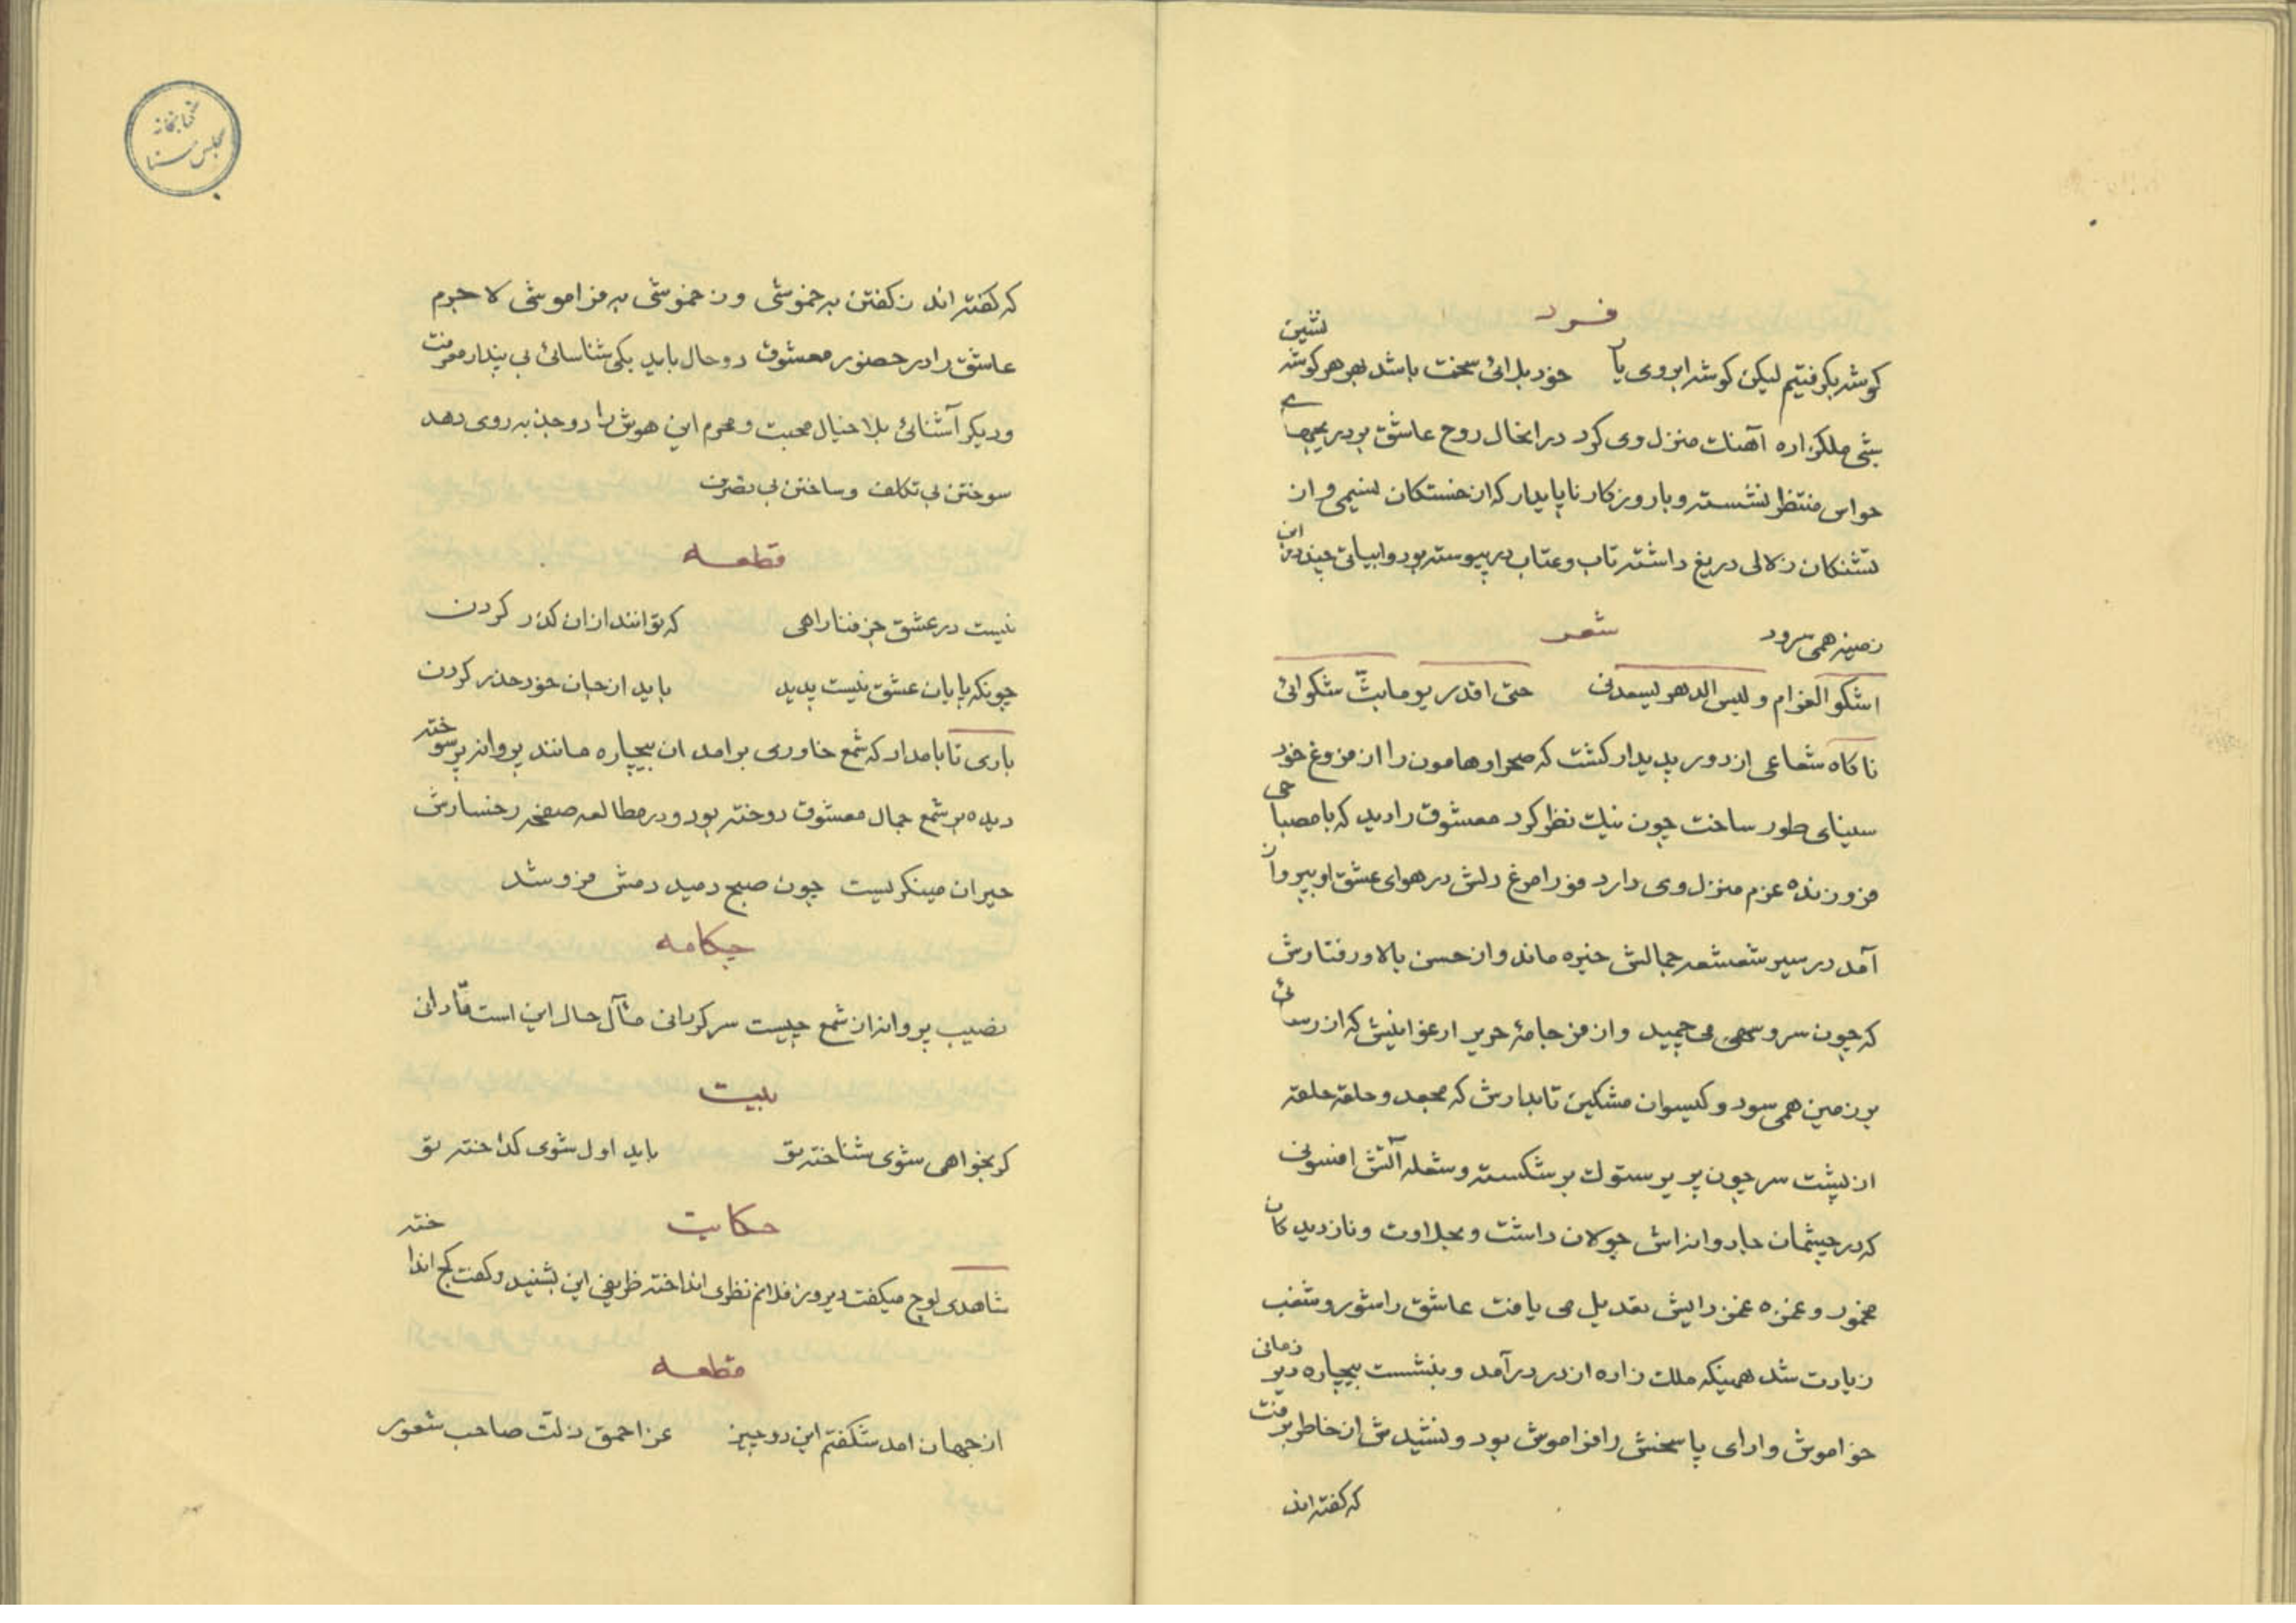 فرد
کوشه بکرفتیم لیکن کوشه ابروی یار خود بلائی سخت باشد بهر هر کوشه نشین
شبی ملکزاده آهنک منزل وی کرد در انحال روح عاشق بر دریچهای
حواس منتظر نشسته و با روزکار ناپایدار که از خستکان نسیمی و از
تشنکان زلالی دریغ داشته تاب و عتاب در پیوسته بود و ابیاتی چند در این
زمینه همی سرود شعر
اشکو الغرام و لیس الدهر یسعدنی حتی اقدر یوما بثّ شکوائی
ناکاه شعاعی از دور پدیدار کشت که صحرا و هامون را از فروغ خود
سینای طور ساخت چون نیک نظر کرد معشوق را دید که با مصباحی
فروزنده عزم منزل وی دارد فورا مرغ دلش در هوای عشق او بپرواز
آمد در سیر شعشعه جمالش خیره ماند و از حسن بالا و رفتارش
که چون سرو سهی می چمید و از فر جامهٔ حریر ارغوانیش که از رسائی
بر زمین همی سود و کیسوان مشکین تابدارش که مجعد و حلقه حلقه
از پشت سر چون پر پرستوک بر شکسته و شعله آتش افسونی
که در چشمان جادوانه اش جولان داشت و بحلاوت و ناز دیدکان
مخمور و غمزه غمز دایش تعدیل می یافت عاشق را شور و شغب
زیادت شد همینکه ملک زاده از در درآمد و بنشست بیچاره دیر زمانی
خواموش و ارای پاسخش را فراموش بود و نشیدش از خاطر برفت
که کفته اند
کتابخانه
مجلس سنا
که کفته اند ز کفتن به خموشی و ز خموشی به فراموشی لاجرم
عاشق را در حضور معشوق دو حال باید یکی شناسائی بی پندار معرفت
و دیکر آشنائی بلا خیال محبت و محرم این هوش را دو جذبه روی دهد
سوختن بی تکلف و ساختن بی تصرف
قطعه
نیست در عشق جز فنا راهی که توانند ازان کذر کردن
چونکه پایان عشق نیست پدید باید از جان خود حذر کردن
باری تا بامداد که شمع خاوری برامد ان بیچاره مانند پروانه پر سوخته
دیده بر شمع جمال معشوق دوخته بود و در مطالعه صفحه رخسارش
حیران مینکریست چون صبح دمید دمش فرو شد
چکامه
نصیب پروانه از شمع چیست سرکردانی مآل حال این است تا دانی
بیت
کر بخواهی شوی شناخته تو باید اول شوی کداخته تو
حکایت
شاهدی لوچ میکفت دیروز فلانم نظری انداخته ظریفی این بشنید و کفت کج انداخته
قطعه
از جهان امد شکفتم این دو چیز عز احمق ذلت صاحب شعور